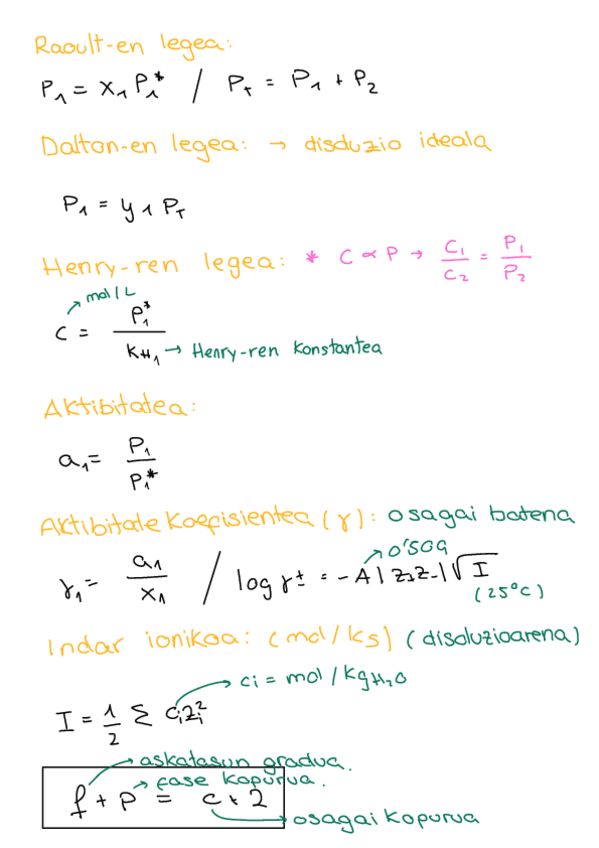 Raoult-en legea:
P₁ = x₁ P₁* / P_T = P₁ + P₂
Dalton-en legea: → disduzio ideala
P₁ = y₁ P_T
Henry-ren legea: * C ∝ P → C₁/C₂ = P₁/P₂
mol/L
C = P₁*/K_H₁ → Henry-ren konstantea
Aktibitatea:
a₁ = P₁/P₁*
Aktibitate koefisientea (γ): osagai batena
γ₁ = a₁/x₁ / log γ± = -A |z₊z₋| √I
0'509
(25°C)
Indar ionikoa: (mol/kg) (disoluzioarena)
ci = mol/kg H₂O
I = 1/2 Σ cᵢzᵢ²
askatasun gradua.
fase kopurua.
f + p = c + 2
osagai kopurua